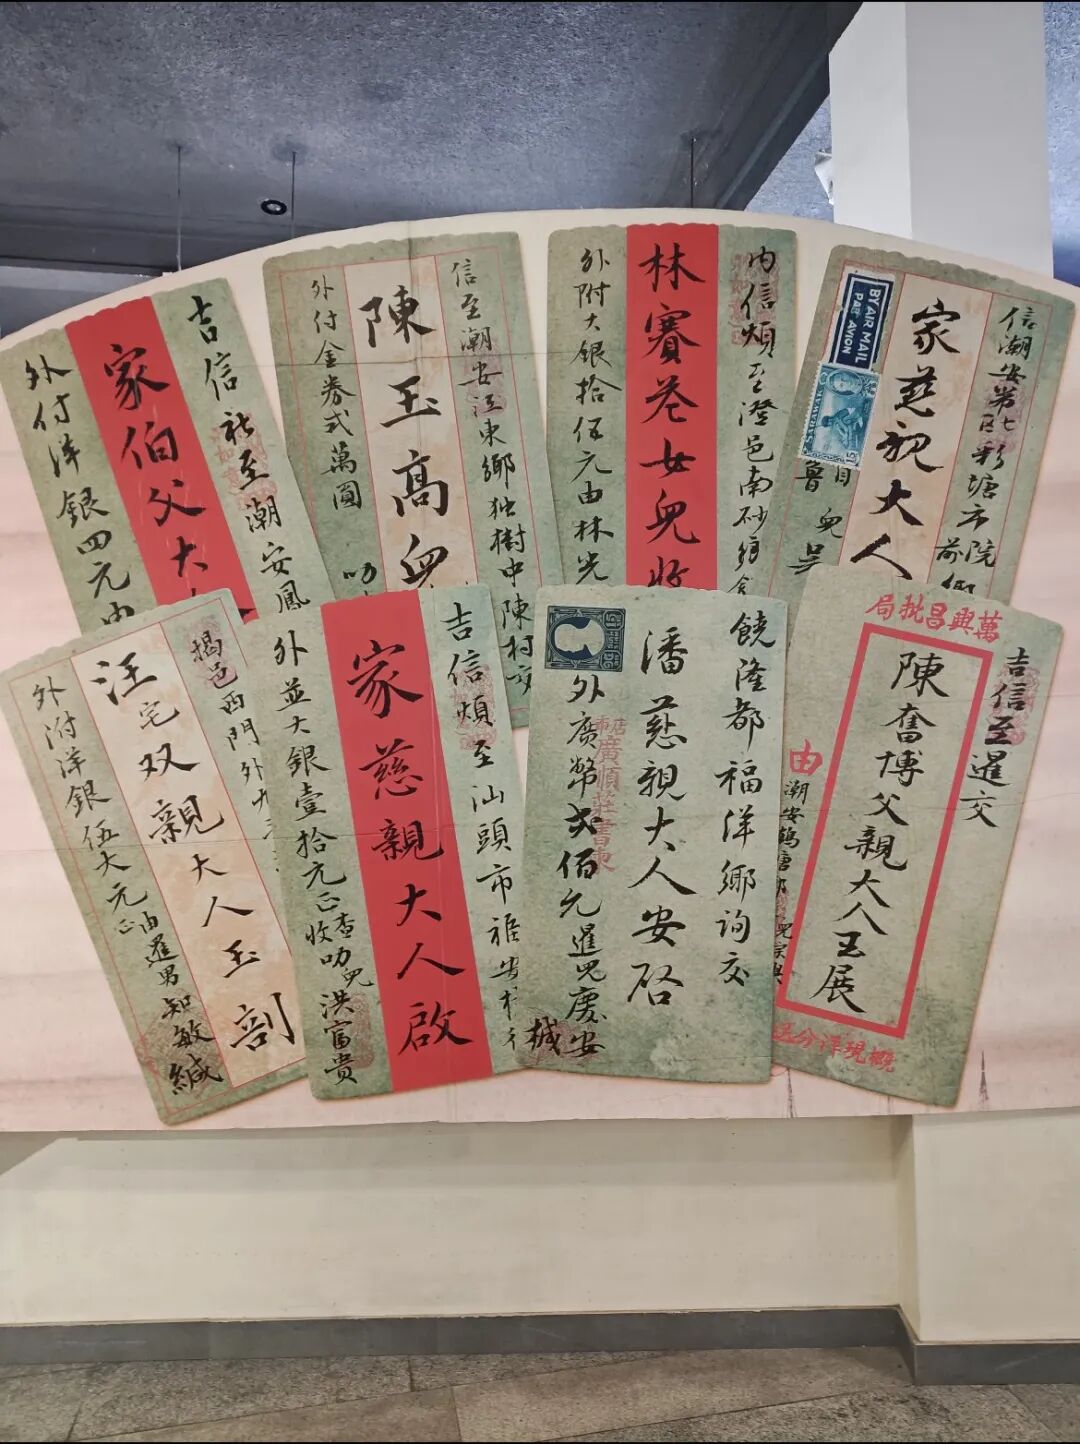 吉信祉至潮安鳳
家伯父大
外付洋銀四元由
信至潮安江東鄉独樹中陳村交
陳玉高兒
外付金券弍萬圓
叻
内信煩至澄邑南砂鄉
林賽卷女兒收
外附大銀拾伍元由林光
信潮安第七區彩塘市院前鄉
家慈親大人
BY AIR MAIL
PAR AVION
SARAWAK
15
兒吳
揭邑西門外
汪宅双親大人玉剖
外附洋銀伍大元正由暹男知敏緘
吉信煩至汕頭市
家慈親大人啟
外並大銀壹拾元正查收叻兒洪富貴
饒隆都福洋鄉詢交
潘慈親大人安啓
外廣幣弍佰元暹兒慶安
械
萬興昌批局
吉信至暹交
陳奮博父親大人玉展
由
潮安鶴塘
概現洋分送